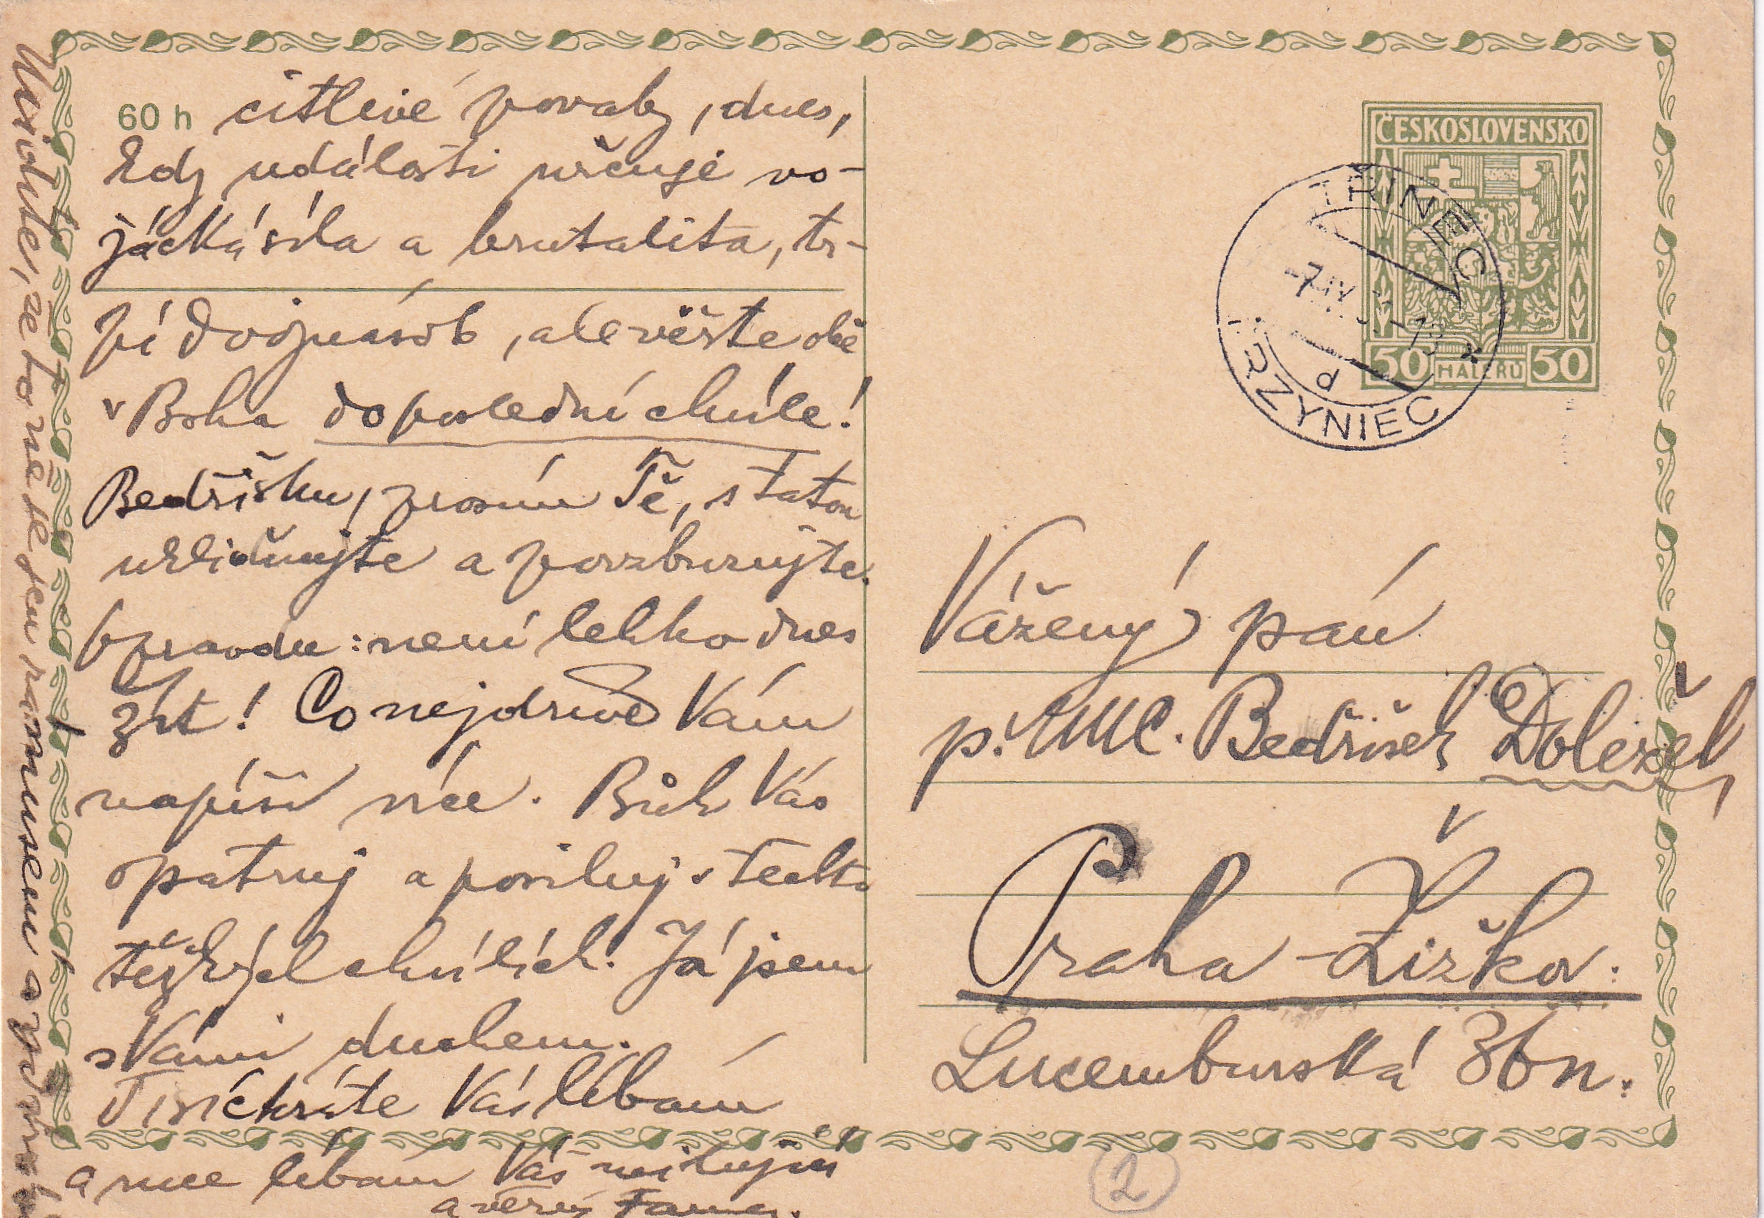 60 h citlivé povahy, dnes,
kdy události určuje vo-
jácká síla a brutalita, tr-
pí dvojnásob, ale věřte obě
v Boha do poslední chvíle!
Bedříšku, prosím Tě, s Tatou
uklidňujte a povzbuzujte.
Opravdu: není lehko dnes
žít! Co nejdříve Vám
napíši více. Bůh Vás
opatruj a posiluj v těchto
těžkých chvílích. Já jsem
s Vámi duchem.
Tisíckráte Vás líbám
a ruce líbám Váš milující
a věrný
Uvidíte, že to někde
ČESKOSLOVENSKO
50 HALÉŘŮ 50
TŘINEC
-7.IX.
d
TRZYNIEC
Vážený pán
p. MUC. Bedřišek Doležel,
Praha - Žižkov.
Lucemburská 36n.
2